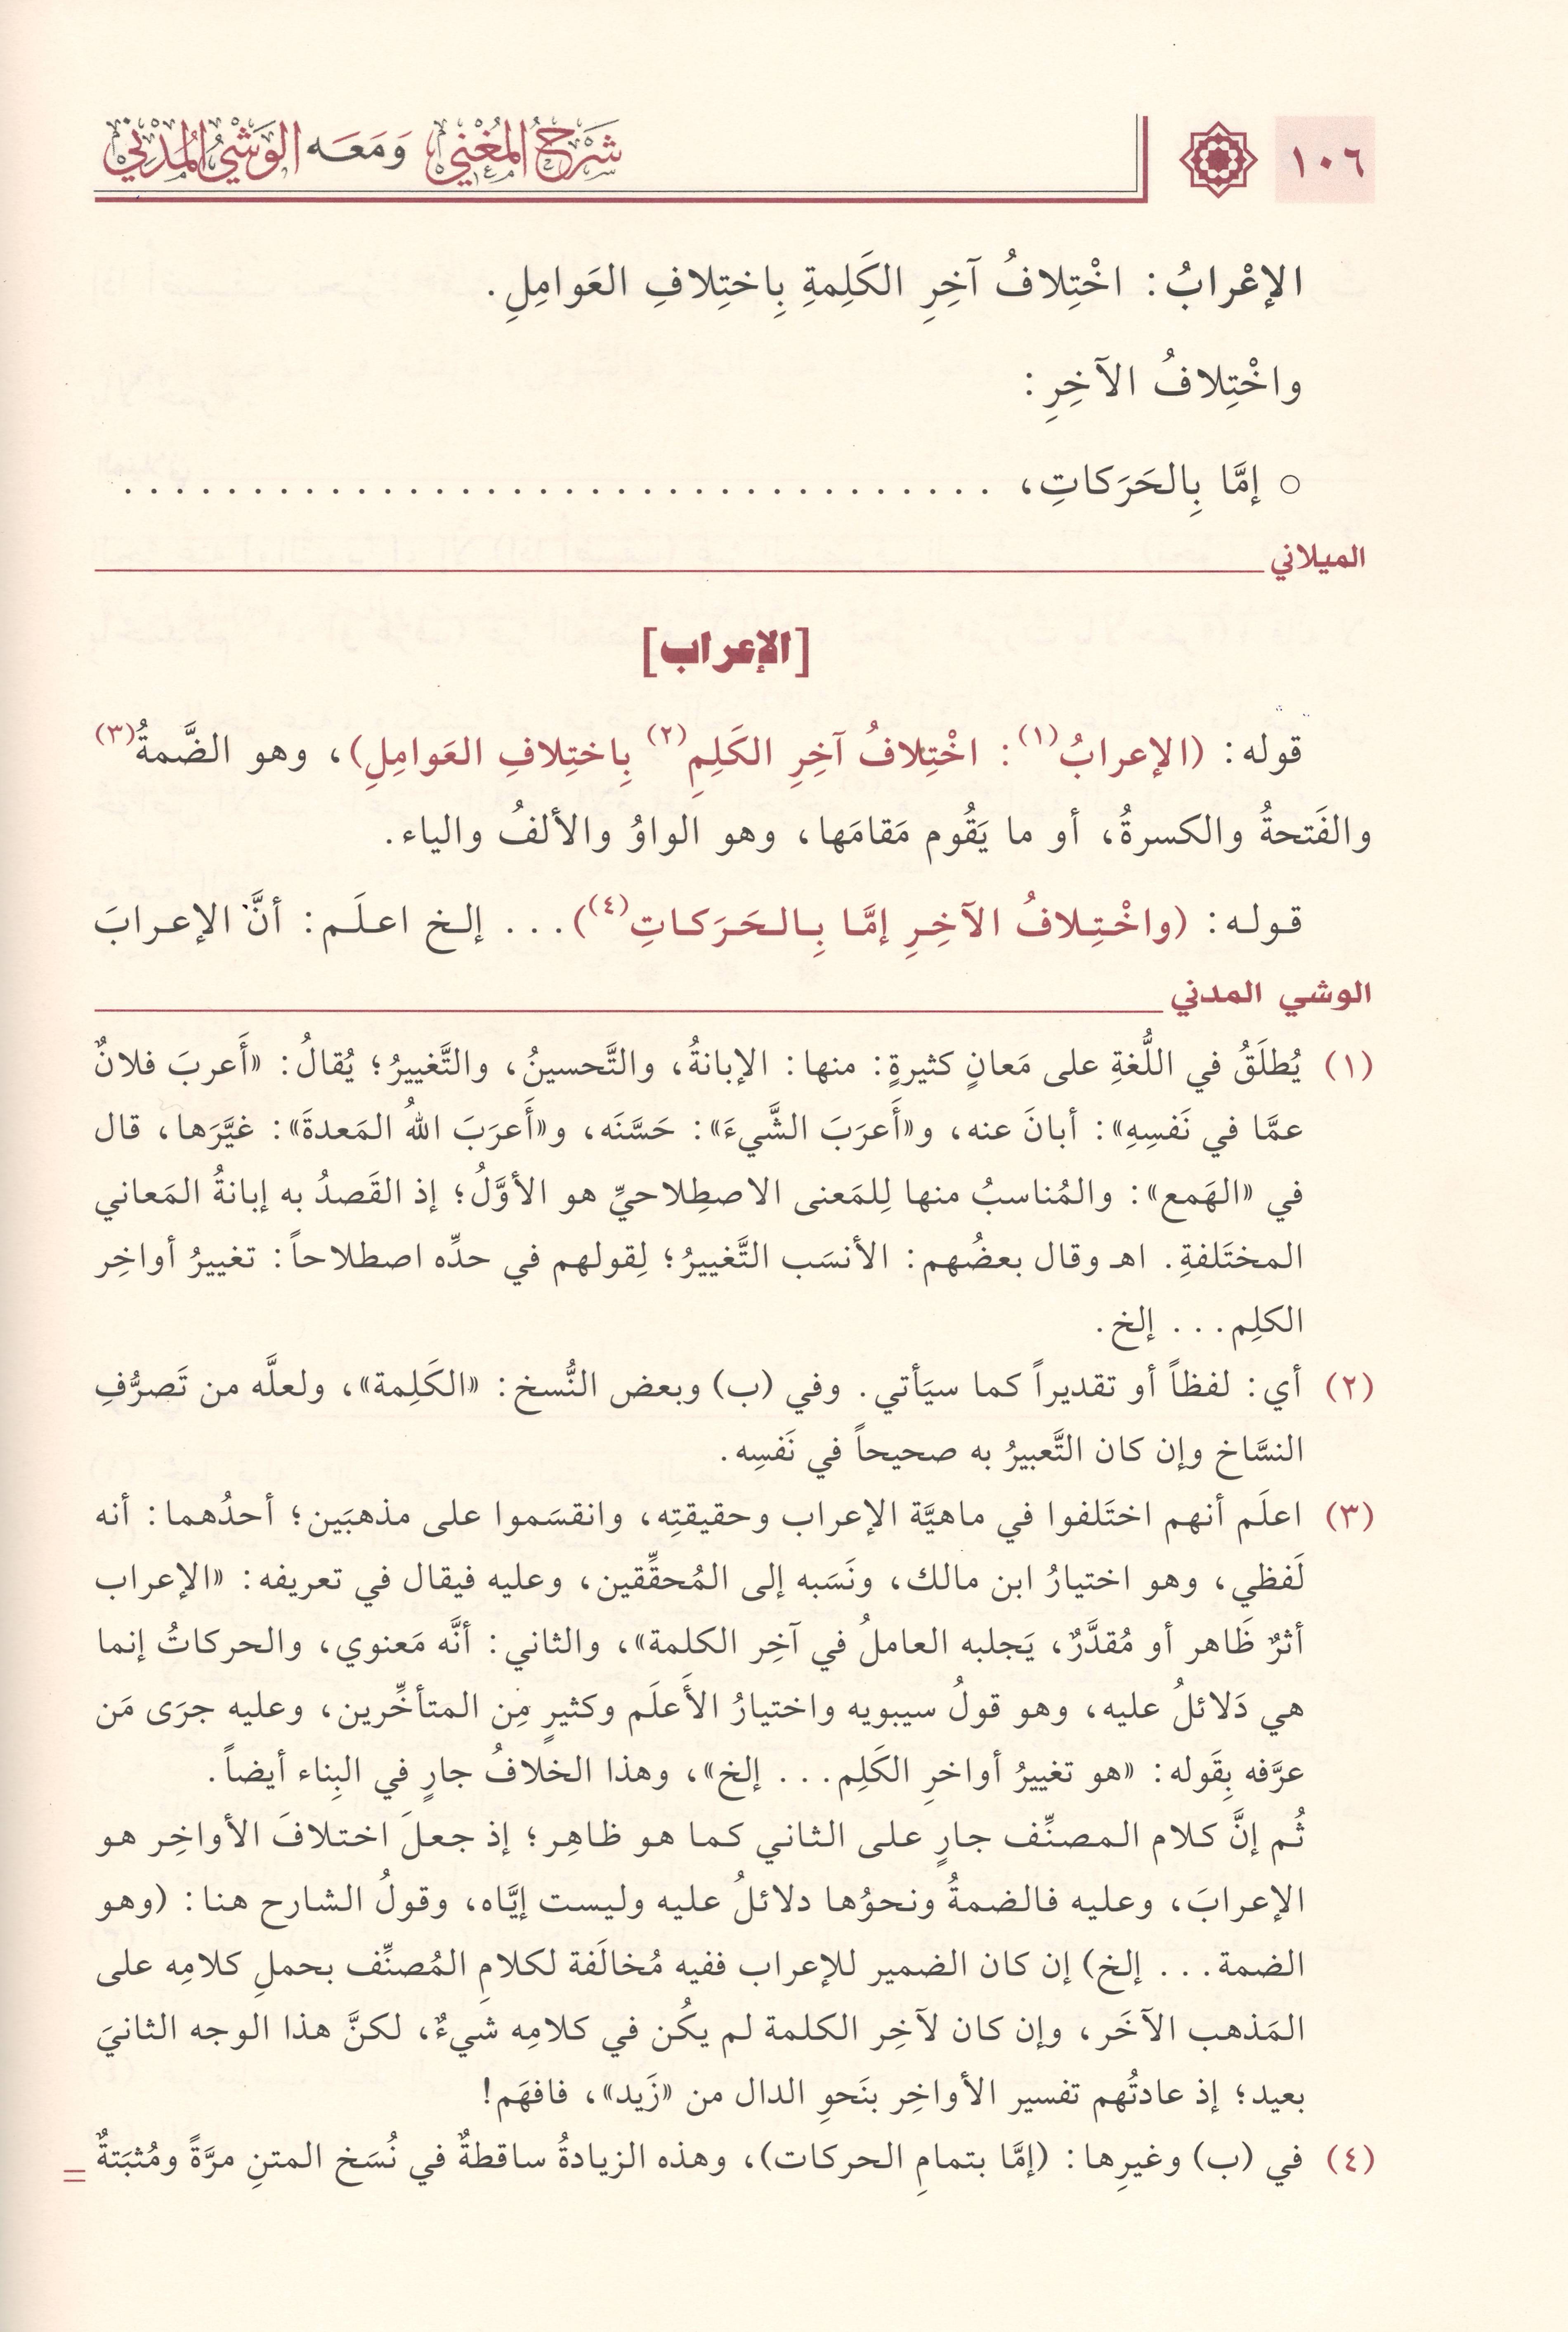 ١٠٦
شَرْحُ المُغْنِي وَمَعَه الوَشْيُ المُدْنِي
الإعْرابُ: اخْتِلافُ آخِرِ الكَلِمةِ بِاختِلافِ العَوامِلِ.
واخْتِلافُ الآخِرِ:
○ إمَّا بِالحَرَكاتِ، . . . . . . . . . . . . . . . . . . . . . . . . . . . . . . . . . .
الميلاني
[الإعراب]
قوله: (الإعرابُ(١): اخْتِلافُ آخِرِ الكَلِمِ(٢) بِاختِلافِ العَوامِلِ)، وهو الضَّمةُ(٣)
والفَتحةُ والكسرةُ، أو ما يَقُوم مَقامَها، وهو الواوُ والألفُ والياء.
قوله: (واخْتِلافُ الآخِرِ إمَّا بِالحَرَكاتِ(٤)). . . إلخ اعلَم: أنَّ الإعرابَ
الوشي المدني
(١) يُطلَقُ في اللُّغةِ على مَعانٍ كثيرةٍ: منها: الإبانةُ، والتَّحسينُ، والتَّغييرُ؛ يُقالُ: «أَعربَ فلانٌ
عمَّا في نَفسِهِ»: أبانَ عنه، و«أَعرَبَ الشَّيءَ»: حَسَّنَه، و«أَعرَبَ اللهُ المَعدةَ»: غيَّرَها، قال
في «الهَمع»: والمُناسبُ منها لِلمَعنى الاصطِلاحيِّ هو الأوَّلُ؛ إذ القَصدُ به إبانةُ المَعاني
المختَلفةِ. اهـ وقال بعضُهم: الأنسَب التَّغييرُ؛ لِقولهم في حدِّه اصطلاحاً: تغييرُ أواخِر
الكلِم. . . إلخ.
(٢) أي: لفظاً أو تقديراً كما سيَأتي. وفي (ب) وبعض النُّسخ: «الكَلِمة»، ولعلَّه من تَصرُّفِ
النسَّاخ وإن كان التَّعبيرُ به صحيحاً في نَفسِه.
(٣) اعلَم أنهم اختَلفوا في ماهيَّة الإعراب وحقيقتِه، وانقسَموا على مذهبَين؛ أحدُهما: أنه
لَفظي، وهو اختيارُ ابن مالك، ونَسَبه إلى المُحقِّقين، وعليه فيقال في تعريفه: «الإعراب
أثرٌ ظَاهر أو مُقدَّرٌ، يَجلبه العاملُ في آخِر الكلمة»، والثاني: أنَّه مَعنوي، والحركاتُ إنما
هي دَلائلُ عليه، وهو قولُ سيبويه واختيارُ الأَعلَم وكثيرٍ مِن المتأخِّرين، وعليه جرَى مَن
عرَّفه بِقَوله: «هو تغييرُ أواخرِ الكَلِم. . . إلخ»، وهذا الخلافُ جارٍ في البِناء أيضاً.
ثُم إنَّ كلام المصنِّف جارٍ على الثاني كما هو ظاهِر؛ إذ جعلَ اختلافَ الأواخِر هو
الإعرابَ، وعليه فالضمةُ ونحوُها دلائلُ عليه وليست إيَّاه، وقولُ الشارح هنا: (وهو
الضمة. . . إلخ) إن كان الضمير للإعراب ففيه مُخالَفة لكلامِ المُصنِّف بحملِ كلامِه على
المَذهب الآخَر، وإن كان لآخِر الكلمة لم يكُن في كلامِه شيءٌ، لكنَّ هذا الوجه الثانيَ
بعيد؛ إذ عادتُهم تفسير الأواخِر بنَحوِ الدال من «زَيد»، فافهَم!
(٤) في (ب) وغيرِها: (إمَّا بتمامِ الحركات)، وهذه الزيادةُ ساقطةٌ في نُسَخ المتنِ مرَّةً ومُثبَتةٌ =